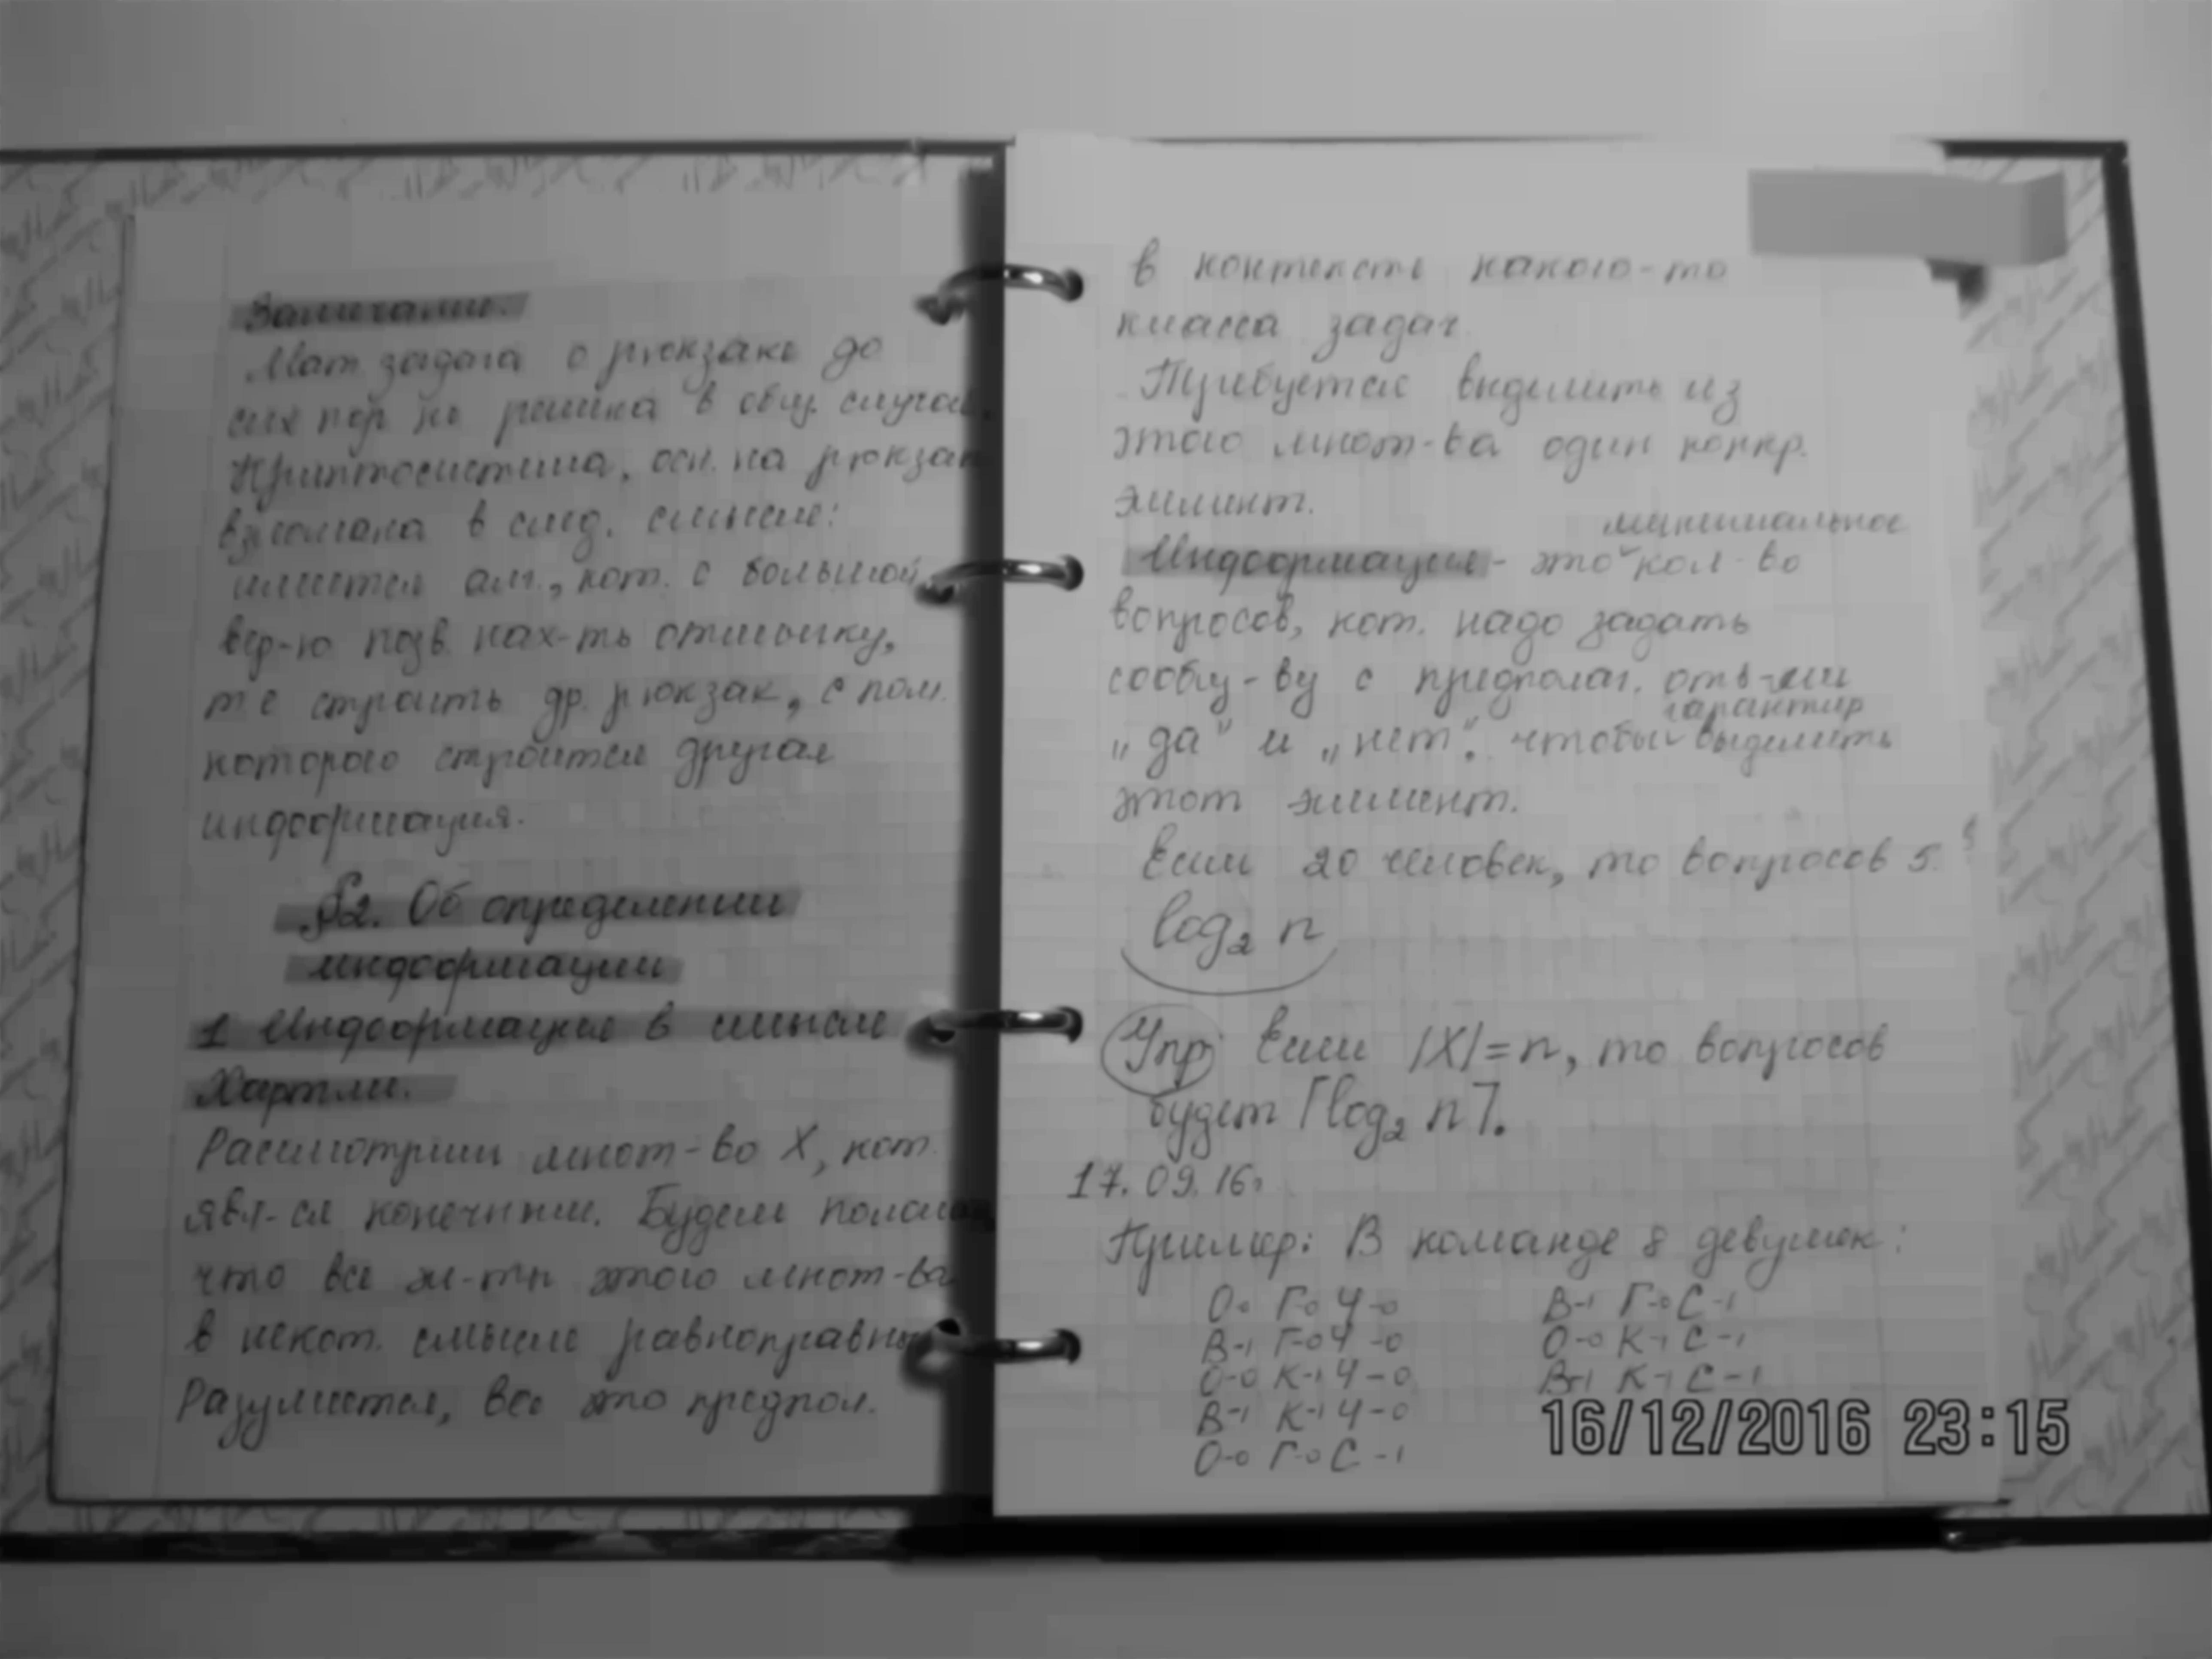 Замечание.
Мат. задача о рюкзаке до
сих пор не решена в общ. случае.
Криптосистема, осн. на рюкзак
взломана в след. смысле:
имеется алг., кот. с большой
вер-ю позв. нах-ть отмычку,
т е строить др. рюкзак, с пом.
которого строится другая
информация.
§2. Об определении
информации
1 Информация в смысле
Хартли.
Рассмотрим множ-во X, кот.
явл-ся конечным. Будем полагать
что все эл-ты этого множ-ва
в некот. смысле равноправны
Разумеется, все это предпол.
в контексте какого-то
класса задач.
Требуется выделить из
этого множ-ва один конкр.
элемент.
минимальное
Информация - это кол-во
вопросов, кот. надо задать
сообщ-ву с предполаг. отв-ми
гарантир
„да" и „нет". чтобы выделить
этот элемент.
Если 20 человек, то вопросов 5.
log₂ n
Упр Если |X|=n, то вопросов
будет ⌈log₂ n⌉.
17.09.16г
Пример: В команде 8 девушек:
О-0 Г-0 Ч-0
В-1 Г-0 Ч-0
О-0 К-1 Ч-0
В-1 К-1 Ч-0
О-0 Г-0 С-1
В-1 Г-0 С-1
О-0 К-1 С-1
В-1 К-1 С-1
16/12/2016 23:15